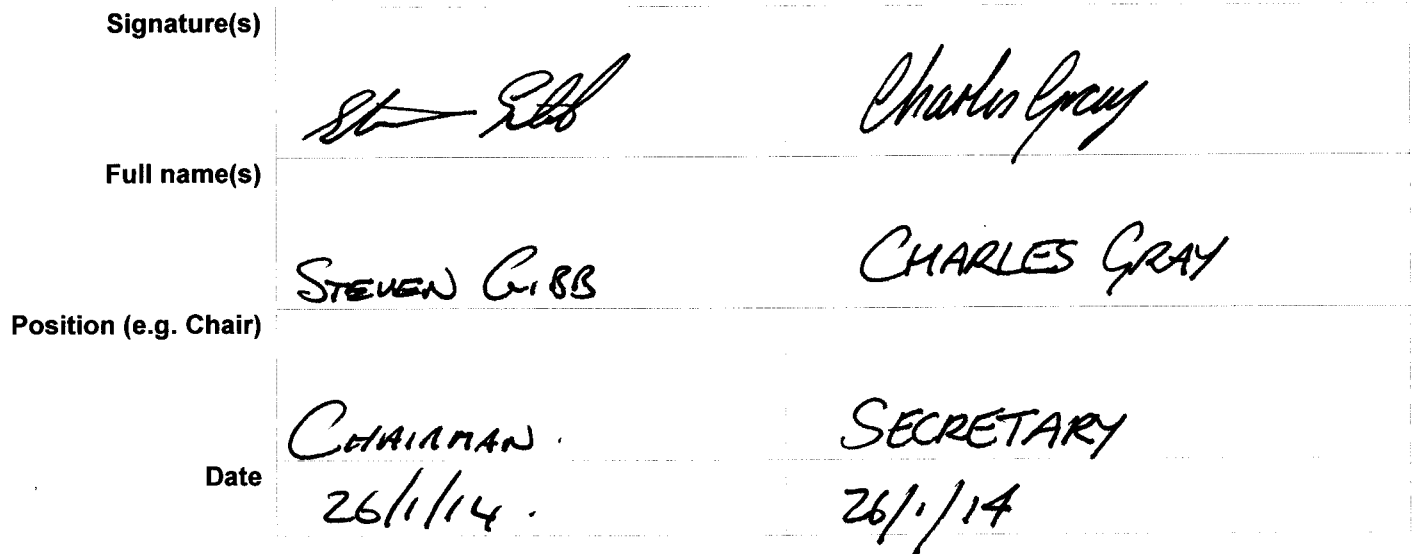 Signature(s)
Charles Gray
Full name(s)
STEVEN GIBB CHARLES GRAY
Position (e.g. Chair)
CHAIRMAN. SECRETARY
Date
26/1/14. 26/1/14